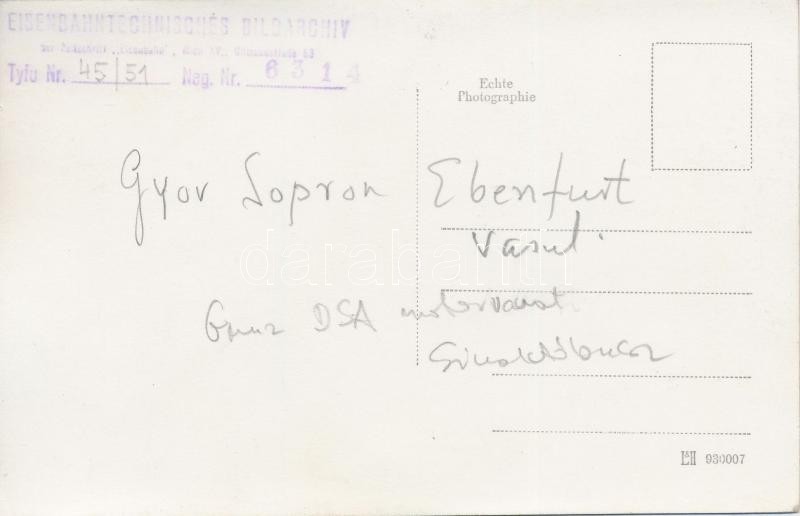 EISENBAHNTECHNISCHES BILDARCHIV
der Zeitschrift „Eisenbahn", Wien XV., 63
Tyfu Nr. 45/51 Neg. Nr. 6314
Echte
Photographie
Gyor Sopron Ebenfurt
vasut.
Ganz DSA motorvonat
930007
darabanth